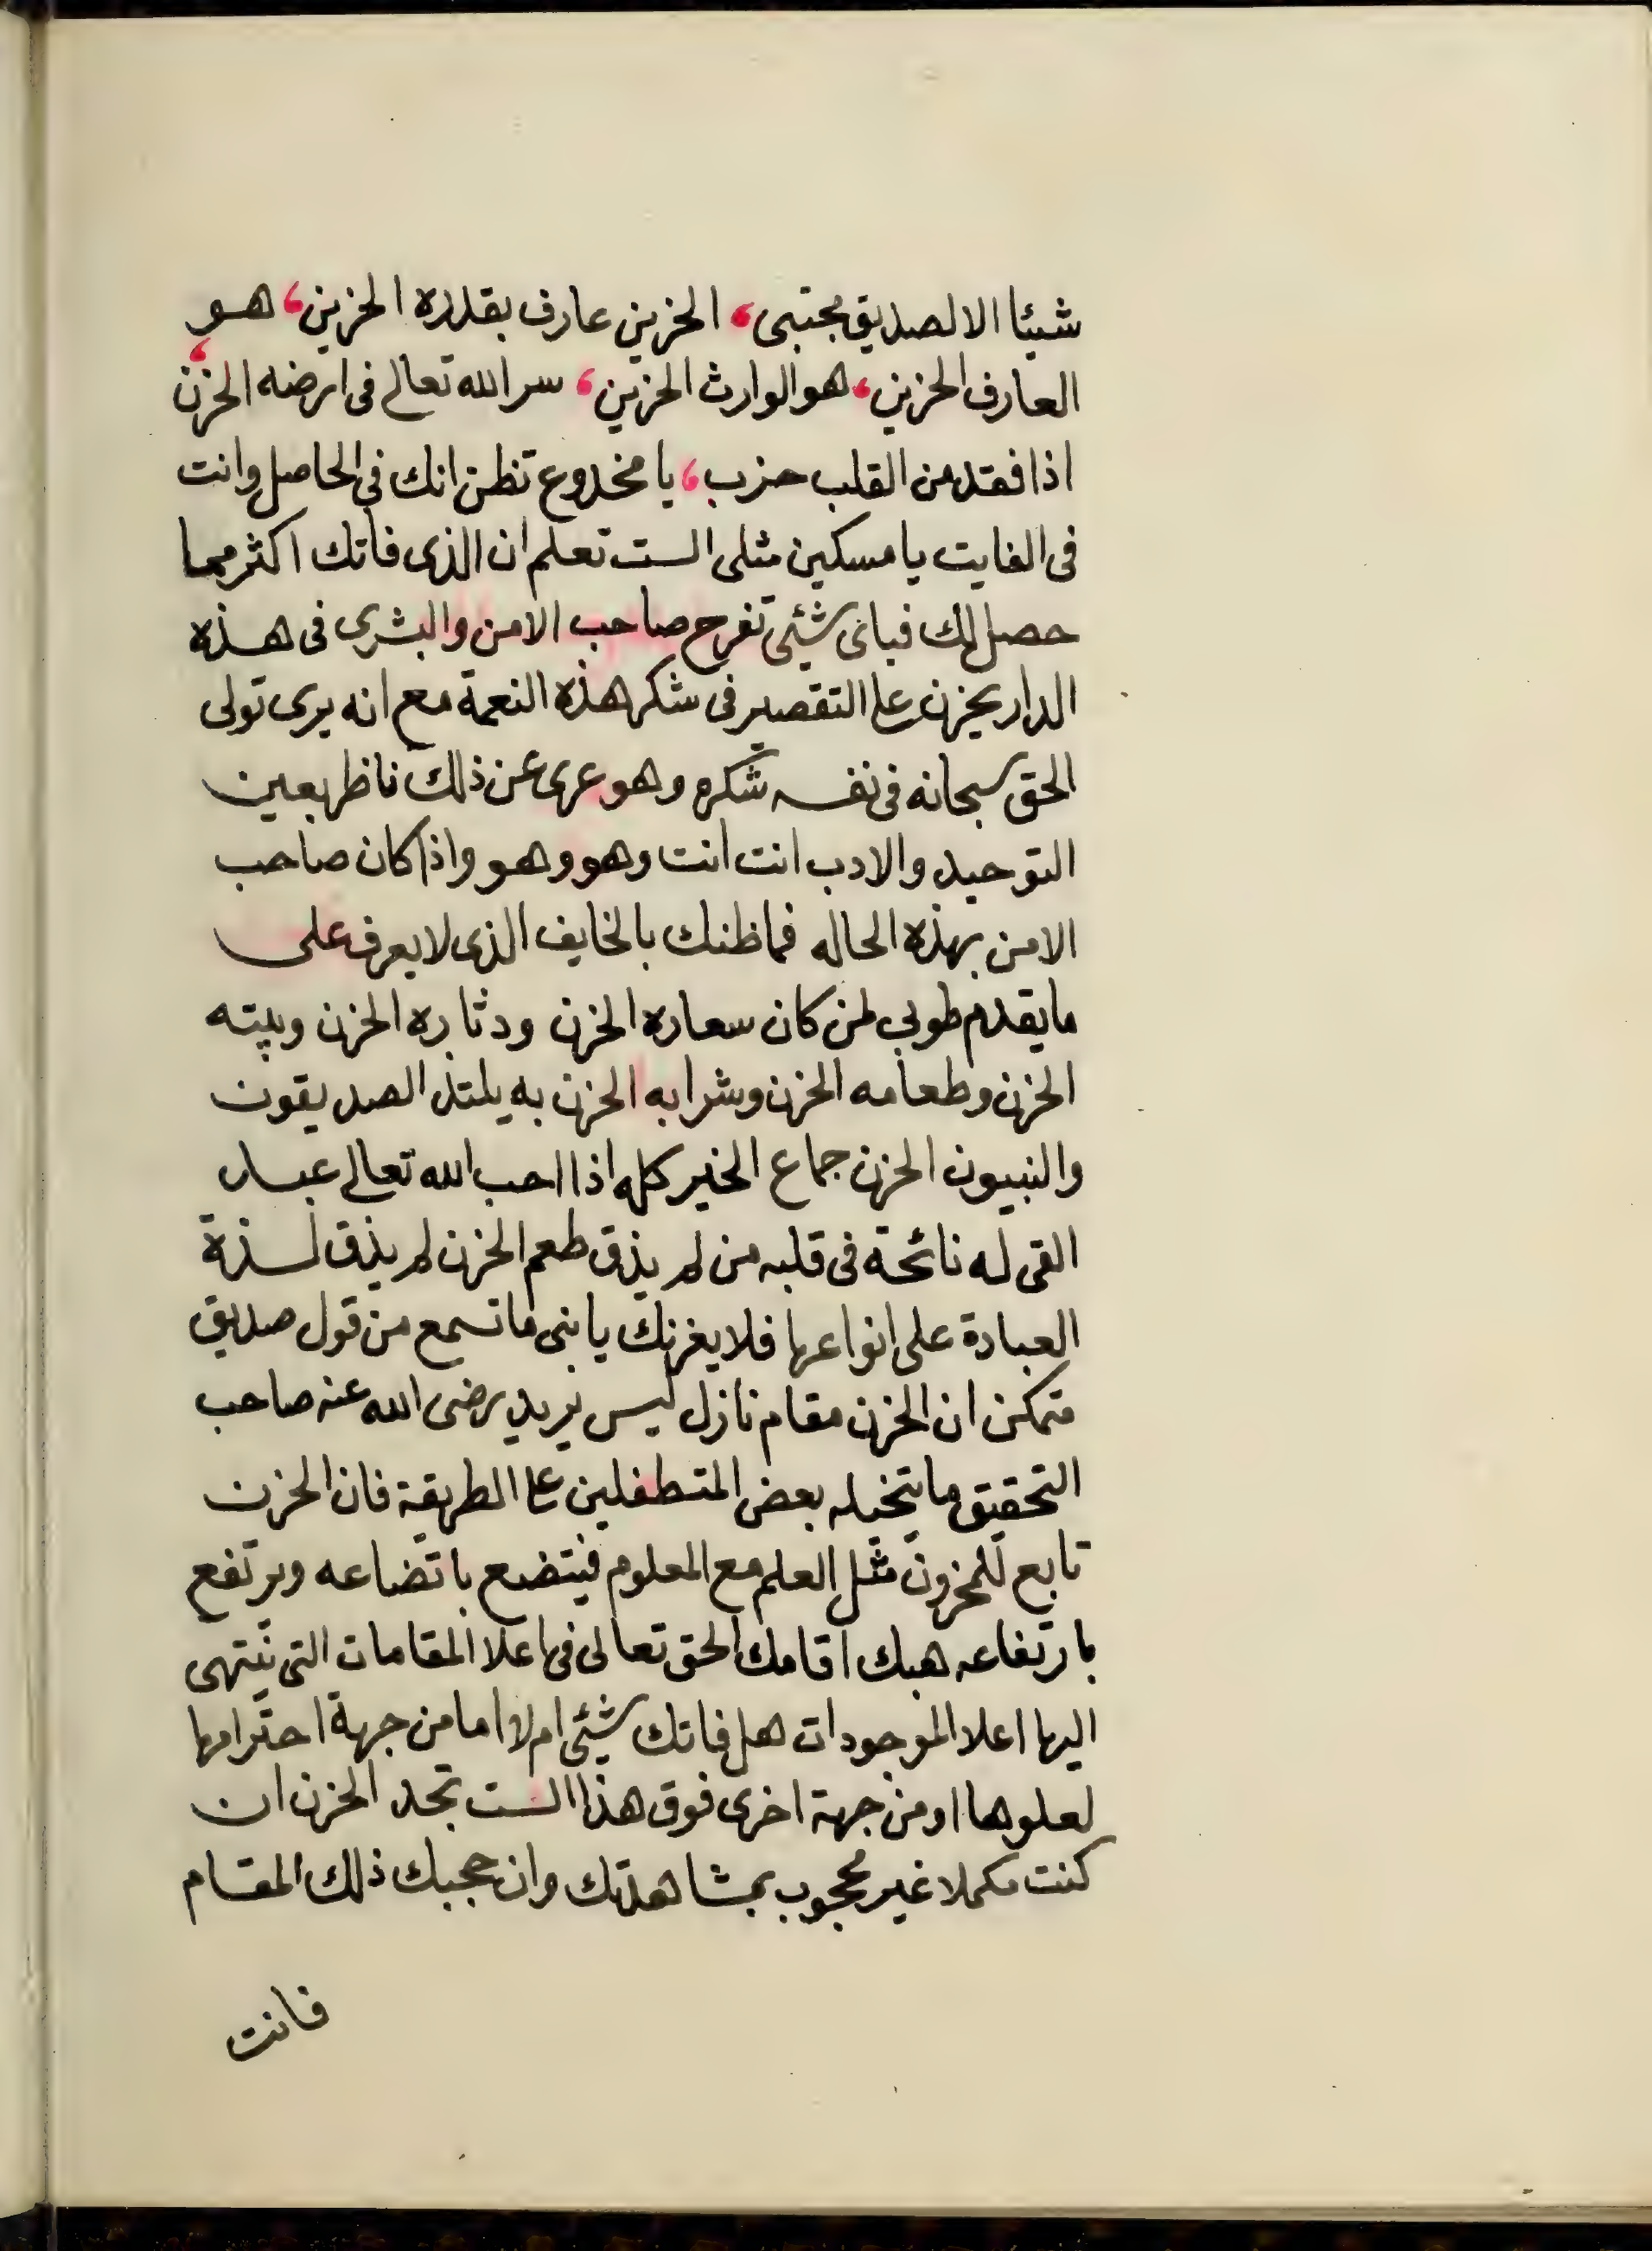 شيئا الا لصديق مجتبى، الحزين عارف بقدره الحزين، هو
العارف الحزين، هو الوارث الحزين، سر الله تعالى فى ارضه الحزن،
اذا فقد من القلب خرب، يا مخدوع تظن انك فى الحاصل وانت
فى الفايت يا مسكين مثلى الست تعلم ان الذى فاتك اكثر مما
حصل لك فباى شيئى تفرح صاحب الامن والبشرى فى هذه
الدار يحزن على التقصير فى شكر هذه النعمة مع انه يرى تولى
الحق سبحانه فى نفسه شكره وهو عرى عن ذلك ناظر بعين
التوحيد والادب انت انت وهو وهو واذا كان صاحب
الامن بهذه الحاله فما ظنك بالخايف الذى لا يعرف على
ما يقدم طوبى لمن كان سعاره الحزن ودثاره الحزن وبيته
الحزن وطعامه الحزن وشرابه الحزن به يلتذ الصديقون
والنبيون الحزن جماع الخير كله اذا احب الله تعالى عبدا
القى له نائحة فى قلبه من لم يذق طعم الحزن لم يذق لذة
العبادة على انواعها فلا يغرنك يا بنى ما تسمع من قول صديق
متمكن ان الحزن مقام نازل ليس يريد رضى الله عنه صاحب
التحقيق ما يتخيله بعض المتطفلين على الطريقة فان الحزن
تابع للمحزون مثل العلم مع المعلوم فيتضع باتضاعه ويرتفع
بارتفاعه هبك اقامك الحق تعالى فى اعلا المقامات التى ينتهى
اليها اعلا الموجودات هل فاتك شيئى ام لا اما من جهة احترامها
لعلوها او من جهة اخرى فوق هذا الست تجد الحزن ان
كنت مكملا غير محجوب بمشاهدتك وان حجبك ذلك المقام
فانت